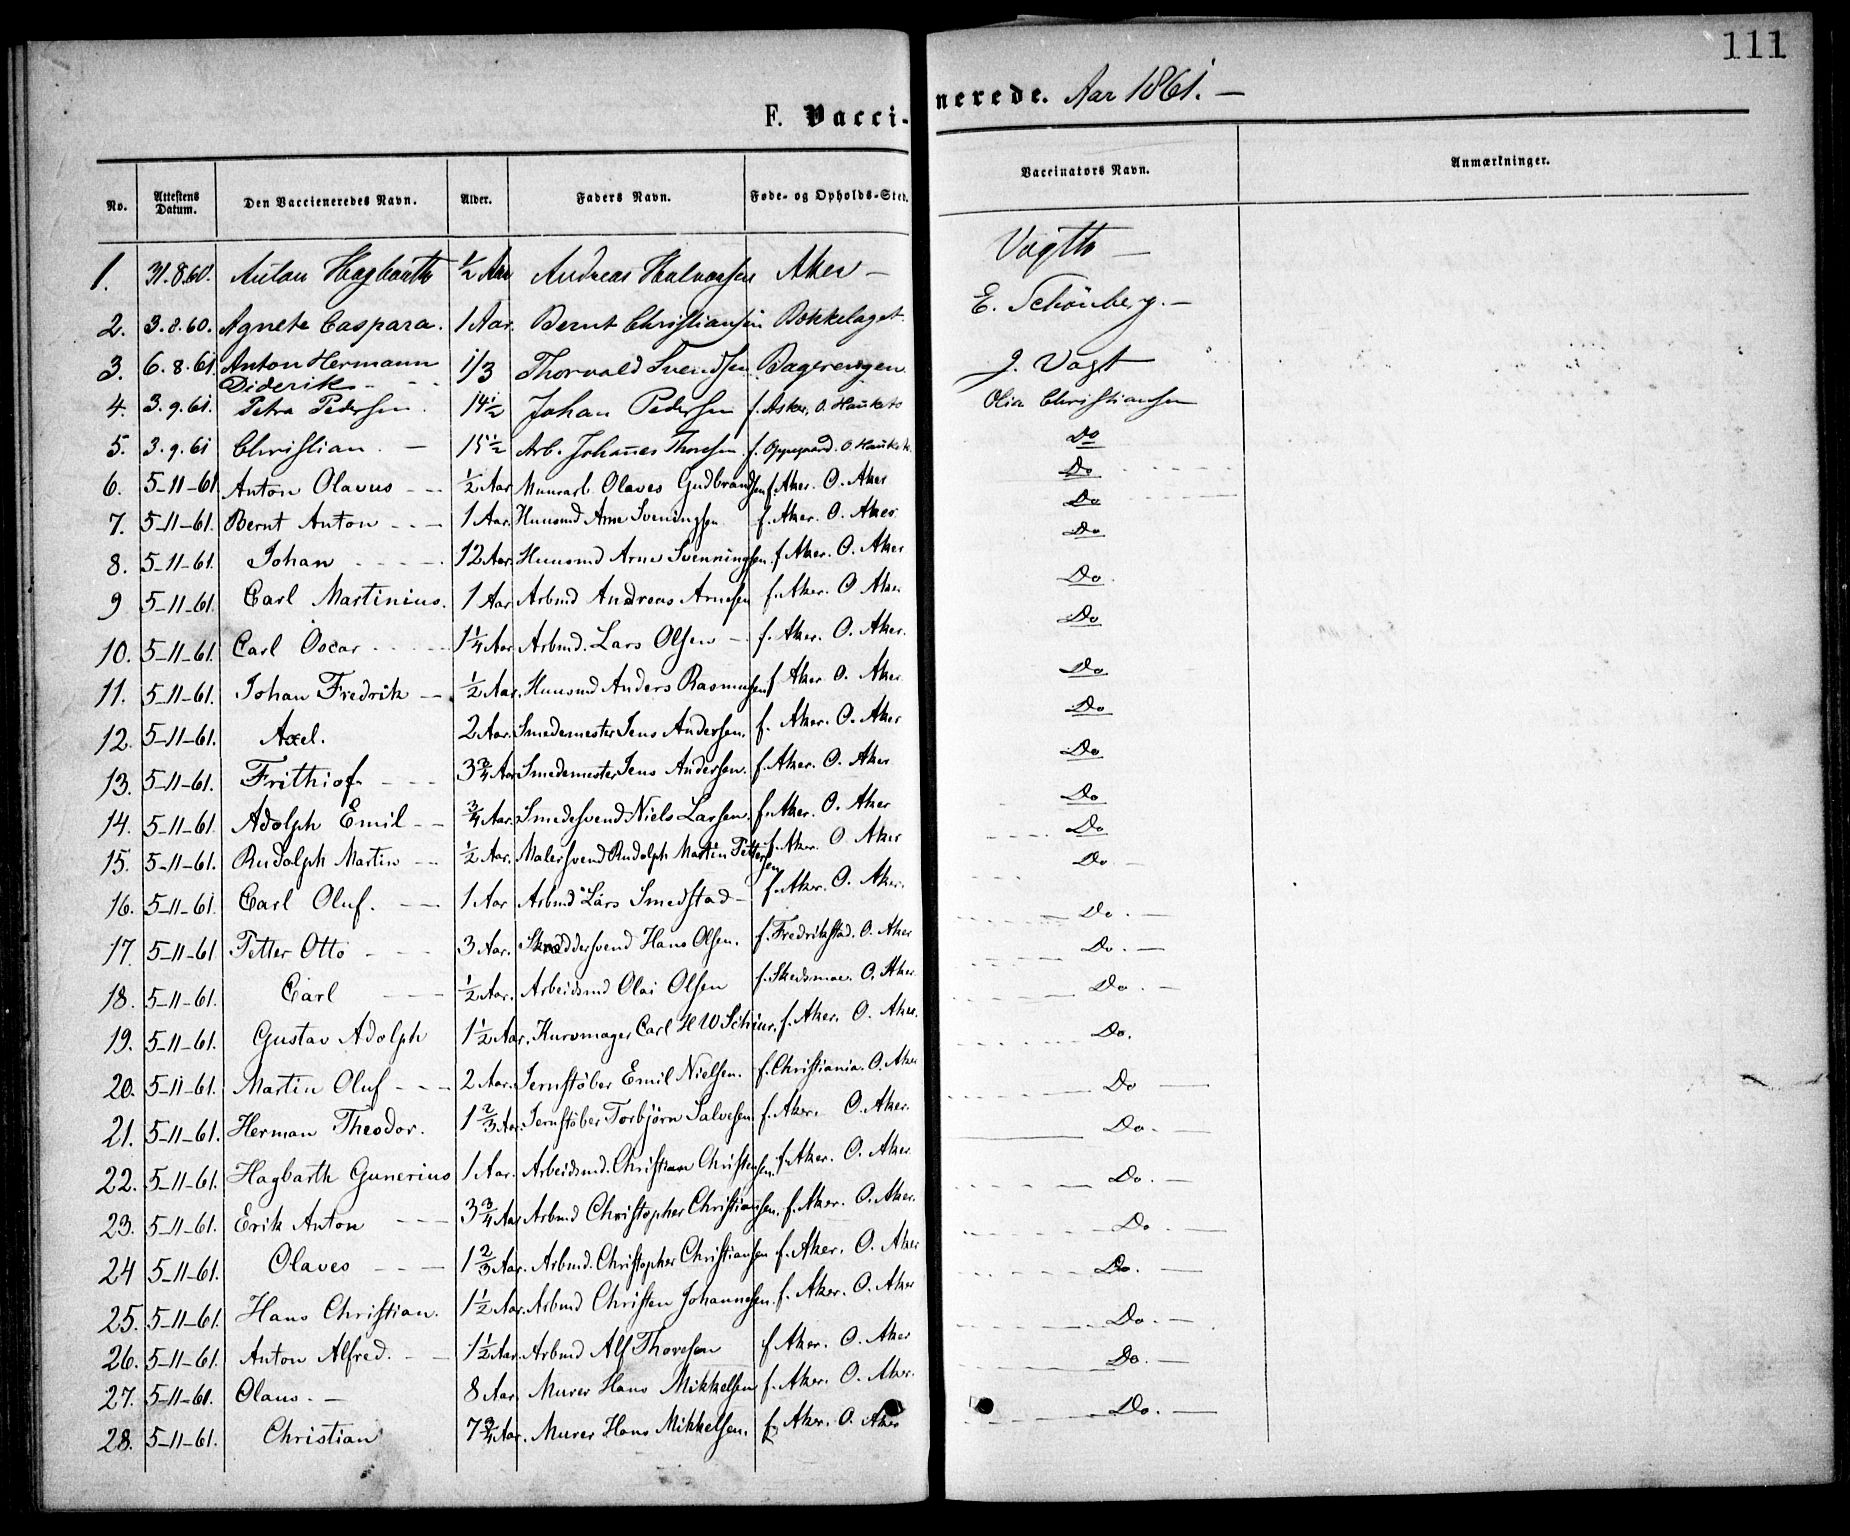 111
F. Vaccinerede. Aar 1861. —
No. Attestens Datum. Den Vaccieneredes Navn. Alder. Faders Navn. Føde- og Opholds-Sted. Vaccinators Navn. Anmærkninger.
1. 31.8.60. Anton Hagbarth ½ Aar Andreas Halvorsen Aker — Vogth —
2. 3.8.60. Agnete Caspara. 1 Aar. Bernt Christiansen Bækkelaget. E. Schönberg. —
3. 6.8.61 Anton Hermann 1/3 Thorvald Svendsen Bagerengen J. Vogt
Diderik - -
4. 3.9.61. Petra Pedersen. 14½ Johan Pedersen f. Asker, O. Hauketo Olia Christiansen
5. 3.9.61 Christian. — 15½ Arb. Johannes Thoresen. f. Oppegaard. O. Hauketo. Do
6. 5-11-61 Anton Olavus - - ½ Aar Murarb. Olaves Gudbrandsen f. Aker. O. Aker Do
7. 5-11-61. Bernt Anton - - - 1 Aar. Huusmd Arne Sveningsen f. Aker. O. Aker Do
8. 5-11-61. Johan - - - - 12 Aar. Huusmd Arne Svenningsen. f. Aker. O. Aker Do
9 5-11-61. Carl Martinius. 1 Aar Arbmd Andreas Arnesen f. Aker. O Aker Do.
10. 5-11-61. Carl Oscar - - - - 1¼ Aar Arbmd. Lars Olsen — f. Aker. O. Aker. Do
11. 5-11-61. Johan Fredrik — ½ Aar. Huusmd Anders Rasmussen f Aker O. Aker Do
12. 5-11-61. Axel. 2 Aar. Smedemester Jens Andersen. f. Aker. O. Aker Do
13. 5-11-61. Frithiof. - - - 3¾ Aar Smedemester Jens Andersen. f. Aker. O. Aker Do
14. 5-11-61 Adolph Emil - - ¾ Aar. Smedesvend Niels Larsen. f. Aker. O. Aker Do
15. 5-11-61. Rudolph Martin - - ½ Aar. Malersvend Rudolph Martin Pettersen f. Aker. O Aker Do
16. 5-11-61. Carl Oluf. - - 1 Aar Arbmd Lars Smedstad — f. Aker. O. Aker. Do -
17. 5-11-61 Petter Otto - - - 3 Aar. Skræddersvend Hans Olsen. f. Fredrikstad. O. Aker Do. —
18. 5-11-61. Carl - - ½ Aar. Arbeidsmd Olai Olsen f. Skedsmoe. O. Aker Do. —
19. 5-11-61. Gustav Adolph 1½ Aar. Kurvmager Carl H W f. Aker. O. Aker. Do. —
20. 5-11-61. Martin Oluf - - - 2 Aar. Jernstöber Emil Nielsen. f. Christiania. O. Aker Do.
21. 5-11-61. Herman Theodor. 1⅔ Aar. Jernstöber Torbjörn Salvesen f. Aker. O. Aker. Do —
22. 5-11-61. Hagbarth Gunerius 1 Aar. Arbeidsmd. Christian Christensen. f. Aker. O. Aker Do. —
23. 5-11-61. Erik Anton - - 3¾ Aar Arbmd Christopher Christiansen. f. Aker. O. Aker. Do. —
24 5-11-61. Olaves - - - 1⅔ Aar. Arbmd. Christopher Christiansen f. Aker. O. Aker Do. —
25. 5-11-61. Hans Christian. 1½ Aar. Arbmd Christen Johannesen. f. Aker. O. Aker Do. —
26. 5-11-61. Anton Alfred. — 1½ Aar. Arbmd Alf Thoresen f Aker. O. Aker Do. —
27. 5-11-61. Olaus. — 8 Aar. Murer Hans Mikkelsen f. Aker. O. Aker. Do. —
28. 5-11-61. Christian 7¾ Aar. Murer Hans Mikkelsen. f Aker. O. Aker Do. —